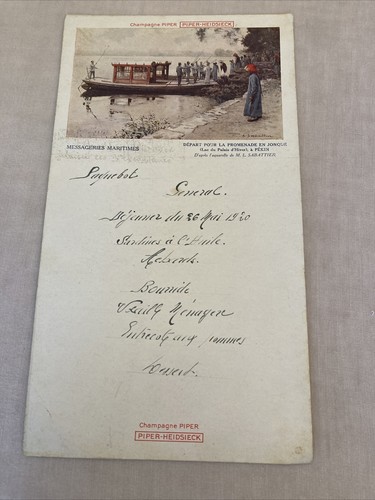 Champagne PIPER PIPER-HEIDSIECK
MESSAGERIES MARITIMES
DÉPART POUR LA PROMENADE EN JONQUE
(Lac du Palais d'Hiver), à PÉKIN
(D'après l'aquarelle de M. L. SABATTIER)
Paquebot
General.
Déjeuner du 26 Mai 1920
Sardines à l'Huile
Bourride
Ménagère
Entrecote aux pommes
Dessert.
Champagne PIPER
PIPER-HEIDSIECK